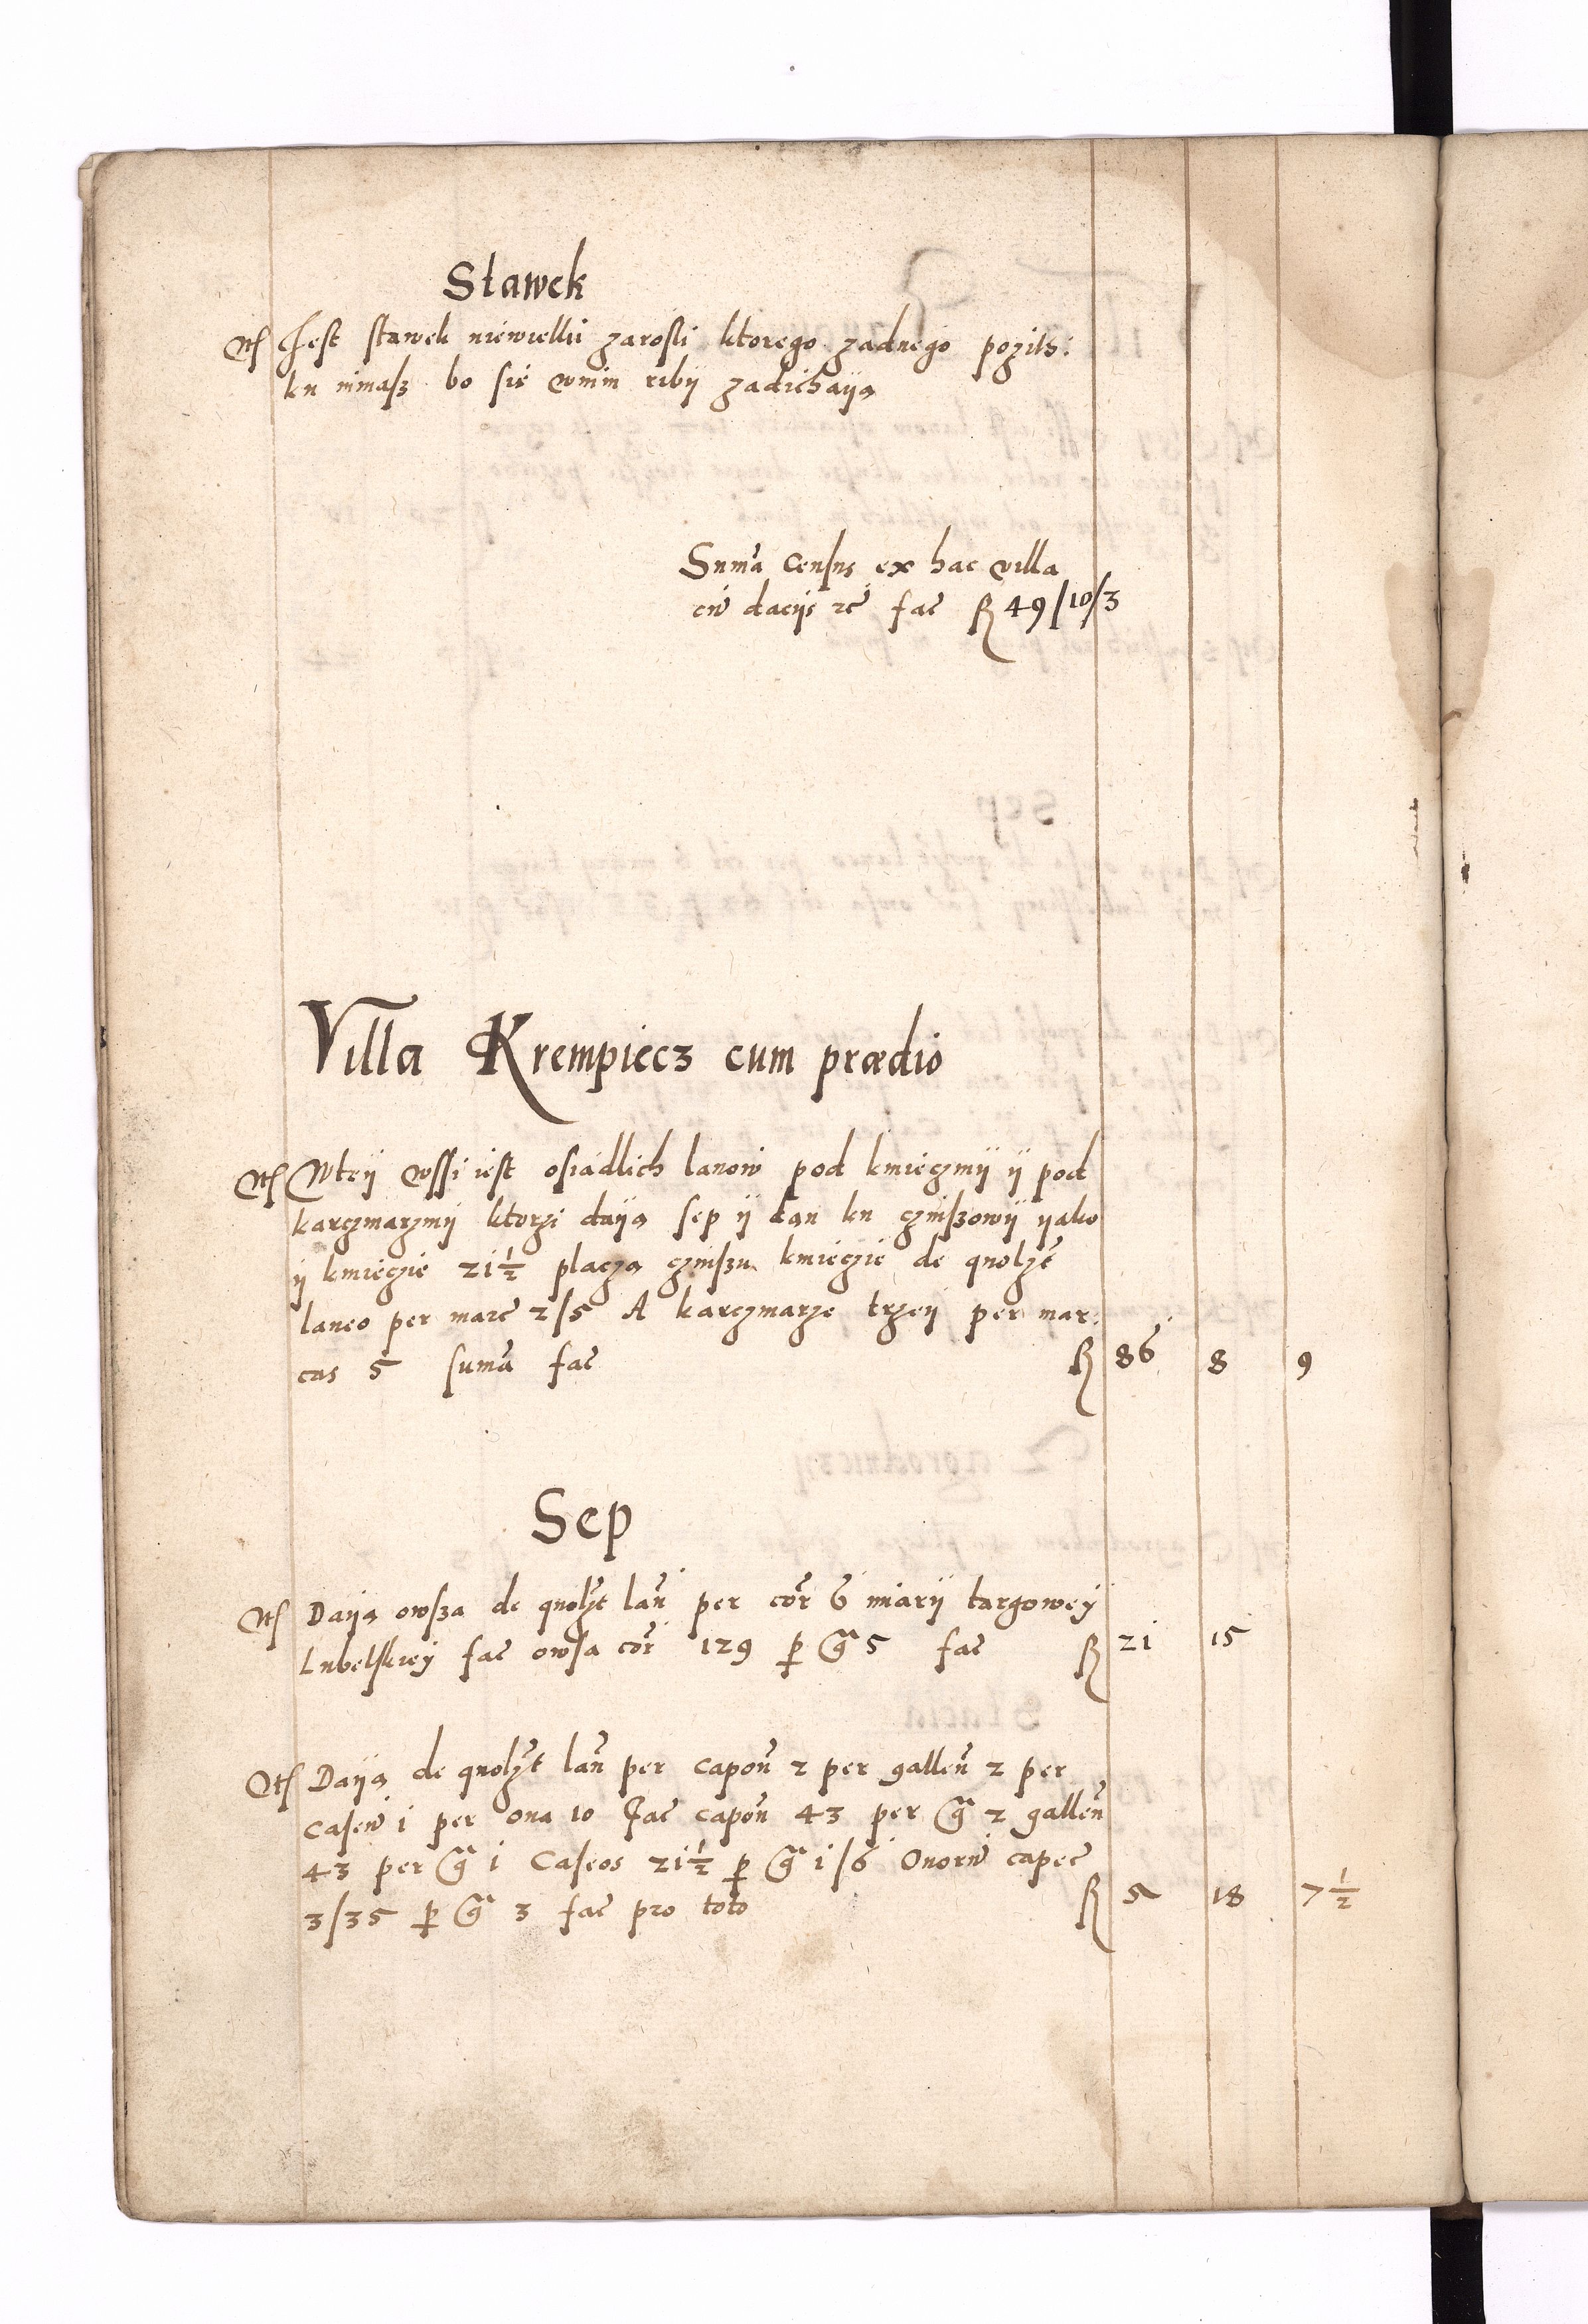 Stawek
Jest stawek niewielki zarosli ktorego zadnego pozith:
ku nimasz bo sie wnim ribÿ zadichaÿa
Suma Census ex hac villa
cu daciis rc fac R 49/10/3
Villa Krempiecz cum prædio
Wteÿ wssi iest osiadlich lanow pod kmieczmÿ ÿ pod
karczmarzmÿ ktorzi daÿa sep ÿ dan ku czinszowÿ ÿako
ÿ kmieczie 21½ placza czinszu kmieczie de quolzt
laneo per marc 2/5 A karczmarze trzeÿ per mar:
cas 5 suma fac R 86 8 9
Sep
Daÿa owsza de quolzt lan per cor 6 miarÿ targoweÿ
Lubelskieÿ fac owsa cor 129 p g 5 fac R 21 15
Daÿa de quolzt lan per capon 2 per gallen 2 per
caseu 1 per oua 10 Fac capon 43 per g 2 gallen
43 per g 1 Caseos 21½ p g 1/6 Ouoru capec
3/35 p g 3 fac pro toto R 5 18 7½